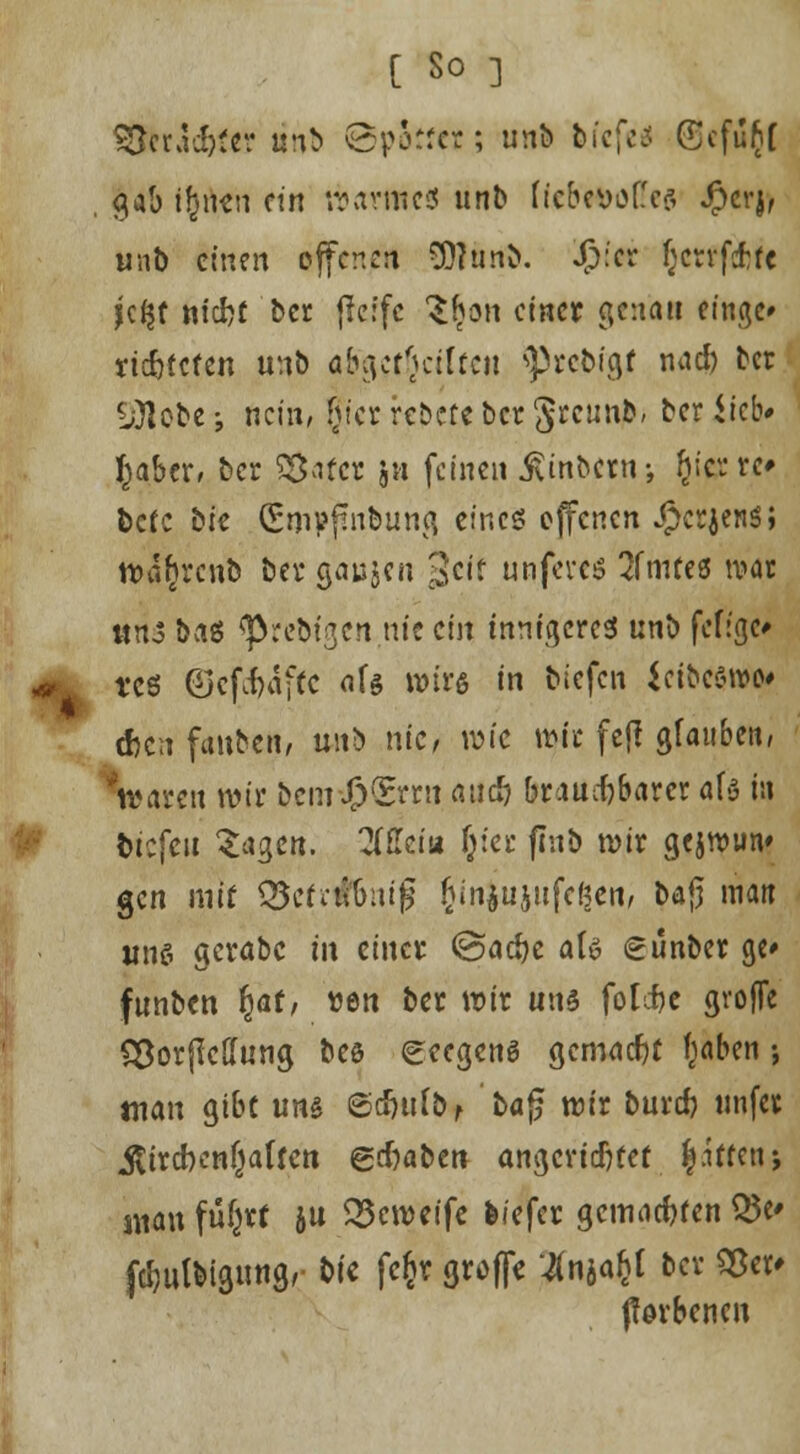 [ 80 ]
Verächter und Spötter; und dieses Gefühl
gab ihnen ein warmes und liebevolles Herz,
und einen offenen Mund. Hier herrschte
jetzt nicht der steife Thon einer genau einge-
richteten und abgetheilten Predigt nach der
Mode; nein, hier redete der Freund, der Lieb-
haber, der Vater zu seinen Kindern; hier re-
dete die Empfindung eines offenen Herzens;
während der ganzen Zeit unseres Amtes war
uns das Predigen nie ein innigeres und selige-
res Geschäfte als wirs in diesen Leibeswo-
chen fanden, und nie, wie wir fest glauben,
waren wir dem HErrn auch brauchbarer als in
diesen Tagen. Allein hier sind wir gezwun-
gen mit Betrübniß hinzuzusetzen, daß man
uns gerade in einer Sache als Sünder ge-
funden hat, von der wir uns solche grosse
Vorstellung des Seegens gemacht haben;
man gibt uns Schuld, daß wir durch unser
Kirchenhalten Schaden angerichtet hätten;
man führt zu Beweise dieser gemachten Be-
schuldigung, die sehr grosse Anzahl der Ver-
storbenen